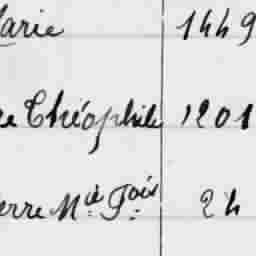 Marie 1449
re Théophile 1201
ierre Mie Fois 24